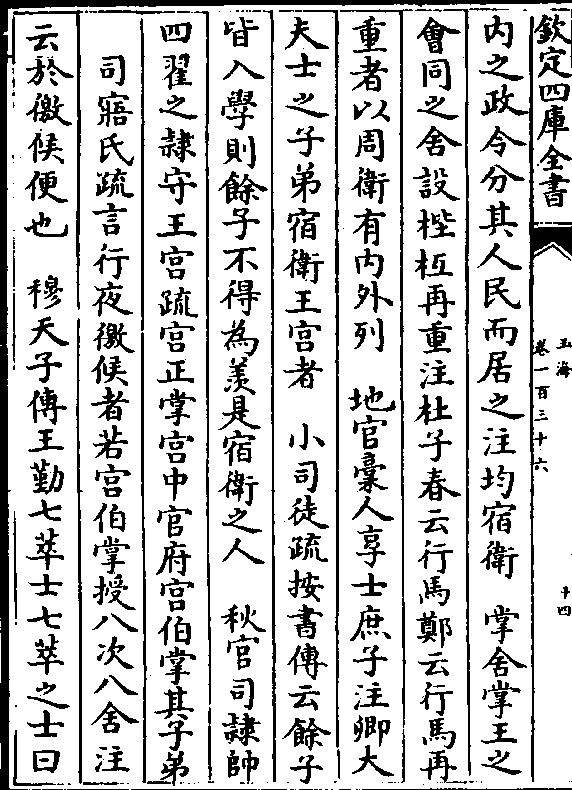 欽定四庫全書
玉海
卷一百三十六
十四
內之政令分其人民而居之注均宿衛　掌舍掌王之
會同之舍設梐枑再重注杜子春云行馬鄭云行馬再
重者以周衛有內外列　地官稾人享士庶子注卿大
夫士之子弟宿衛王宮者　小司徒疏按書傳云餘子
皆入學則餘子不得為羨是宿衛之人　秋官司隷帥
四翟之隷守王宮疏宮正掌宮中官府宮伯掌其子弟
司寤氏疏言行夜徼候者若宮伯掌授八次八舍注
云於徼候便也　穆天子傳王勤七萃士七萃之士曰